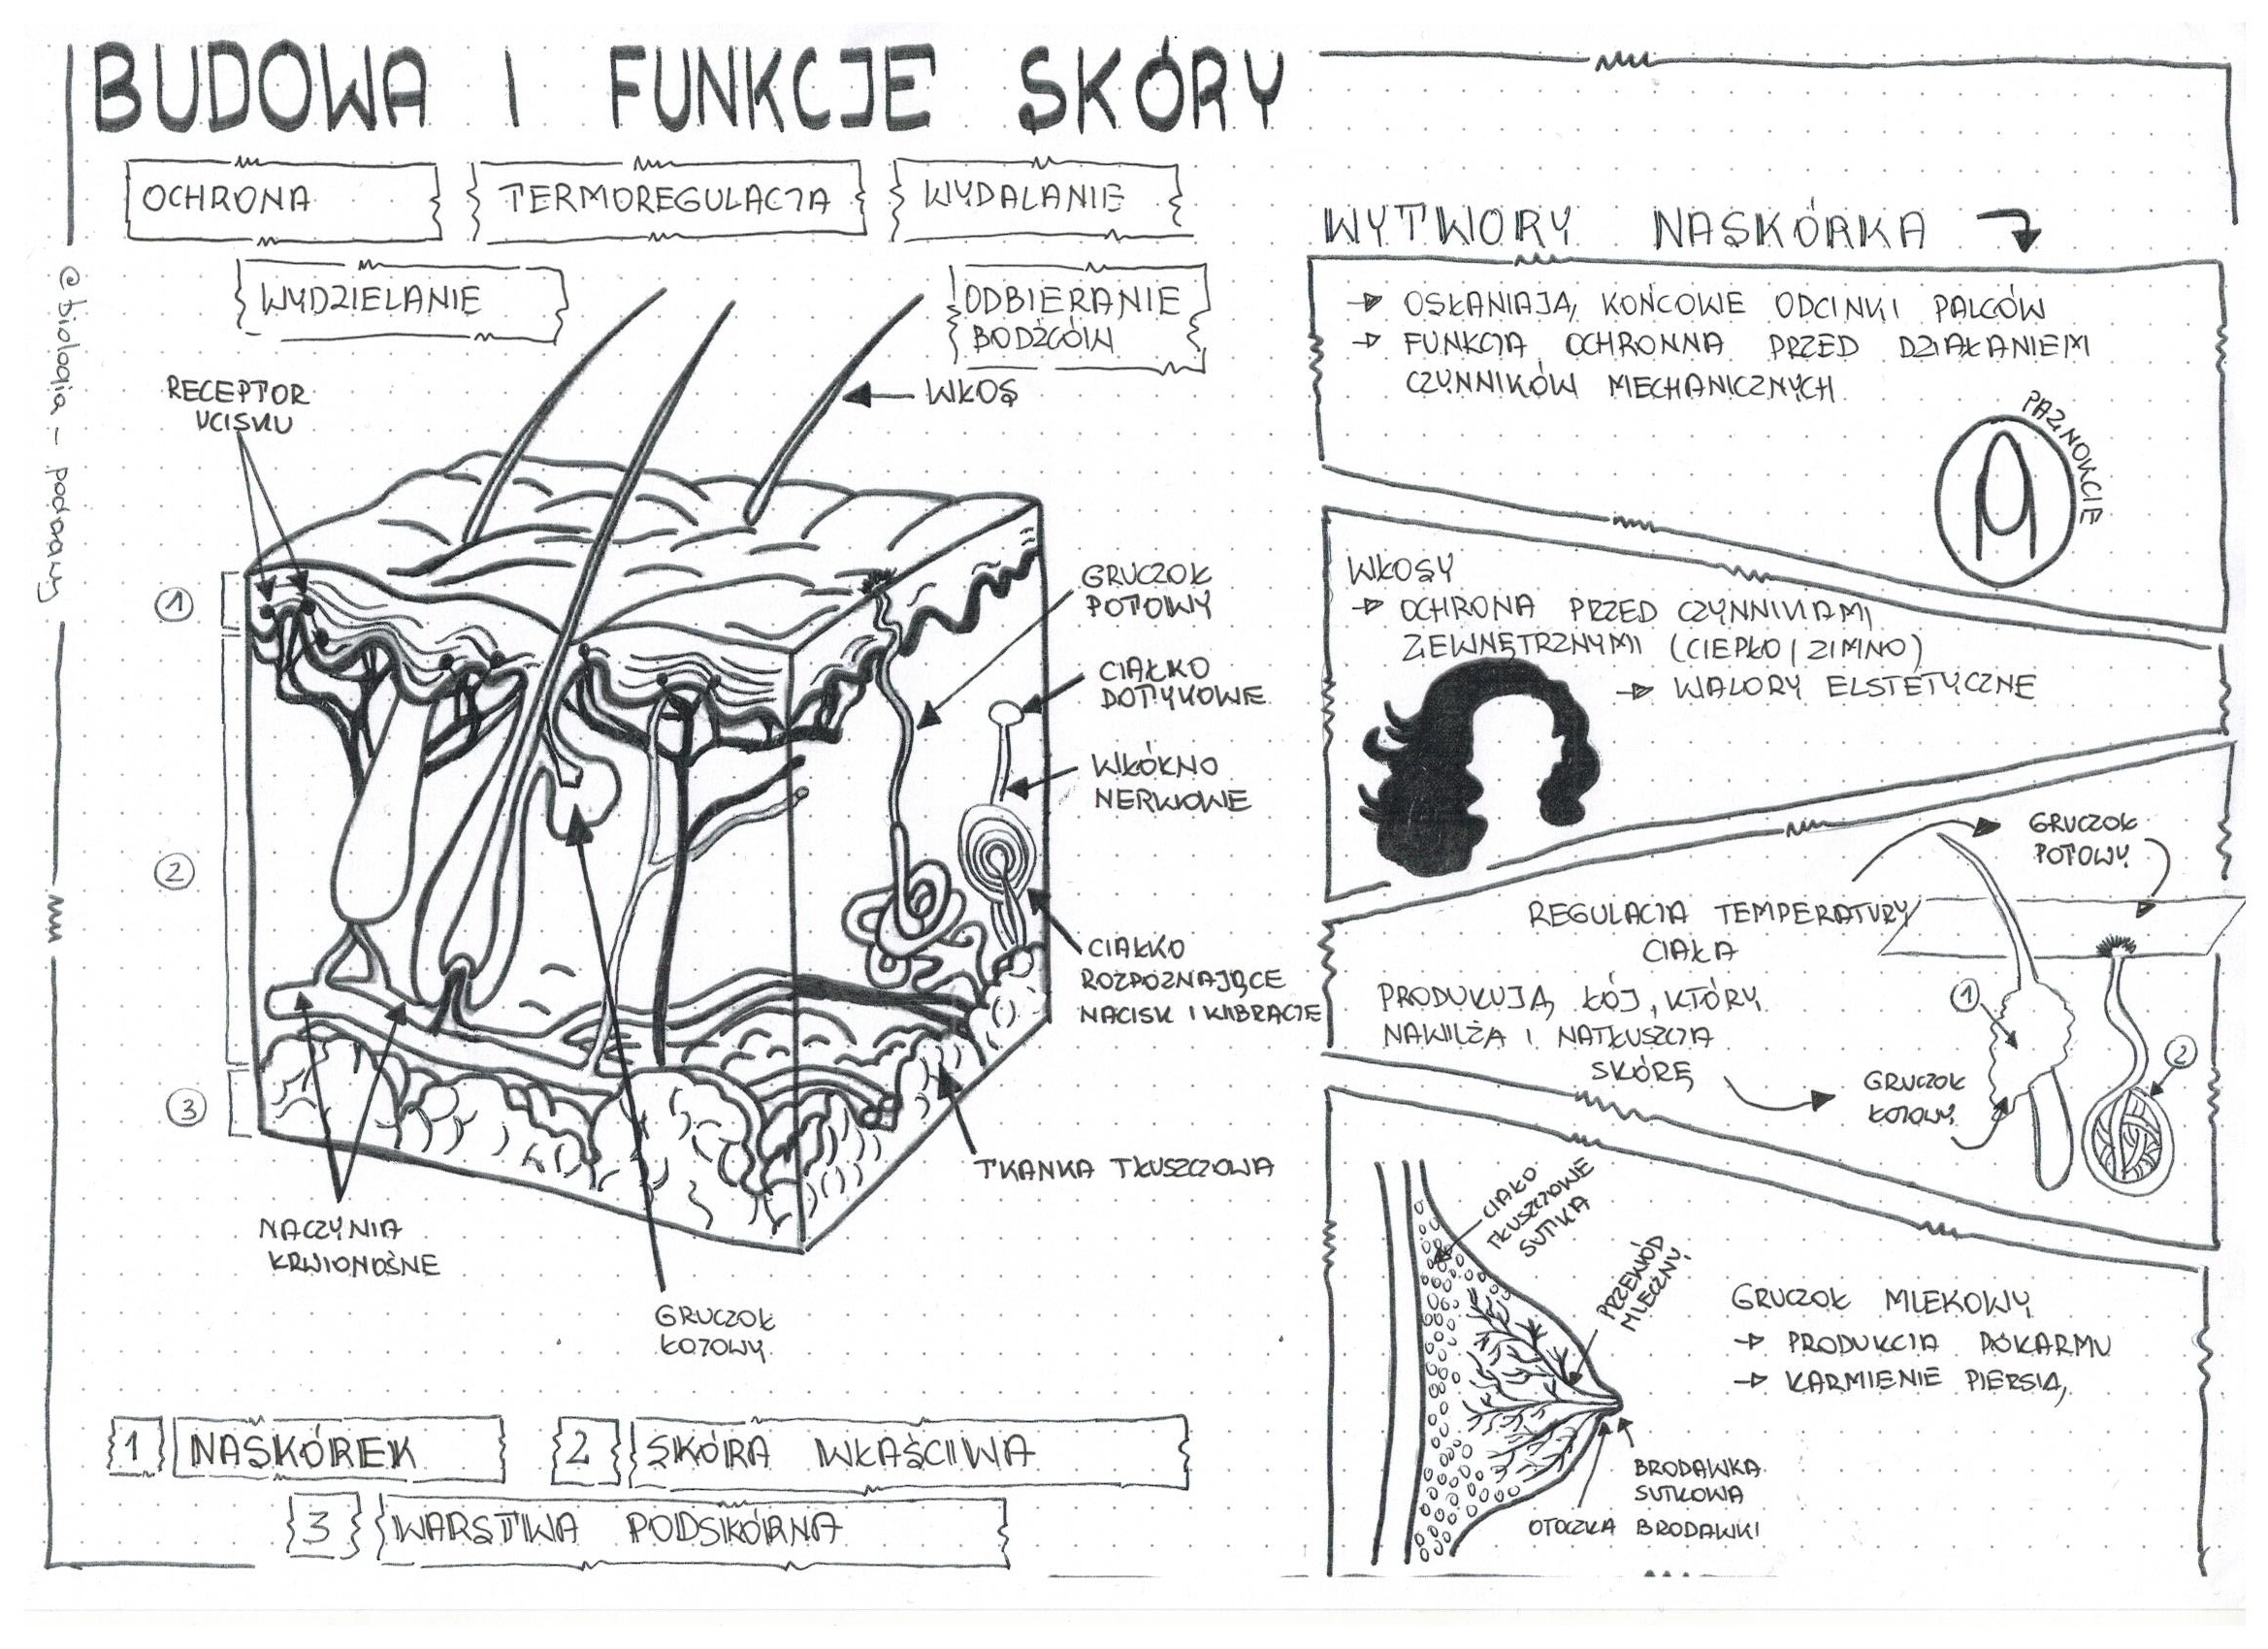 BUDOWA I FUNKCJE SKÓRY
OCHRONA
TERMOREGULACJA
WYDALANIE
WYDZIELANIE
ODBIERANIE
BODŹCÓW
@biologia_podrawy
RECEPTOR
UCISKU
WŁOS
GRUCZOŁ
POTOWY
CIAŁKO
DOTYKOWE
WŁÓKNO
NERWOWE
CIAŁKO
ROZPOZNAJĄCE
NACISK I WIBRACJE
TKANKA TŁUSZCZOWA
NACZYNIA
KRWIONOŚNE
GRUCZOŁ
ŁOJOWY
1
2
3
1 NASKÓREK
2 SKÓRA WŁAŚCIWA
3 WARSTWA PODSKÓRNA
WYTWORY NASKÓRKA
OSŁANIAJĄ KOŃCOWE ODCINKI PALCÓW
FUNKCJA OCHRONNA PRZED DZIAŁANIEM
CZYNNIKÓW MECHANICZNYCH
PAZNOKCIE
WŁOSY
OCHRONA PRZED CZYNNIKAMI
ZEWNĘTRZNYMI (CIEPŁO / ZIMNO)
WALORY ELSTETYCZNE
GRUCZOŁ
POTOWY
REGULACJA TEMPERATURY
CIAŁA
PRODUKUJĄ ŁÓJ, KTÓRY
NAWILŻA I NATŁUSZCJA
SKÓRĘ
GRUCZOŁ
ŁOJOWY
1
2
CIAŁO
TŁUSZCZOWE
SUTKA
PRZEWÓD
MLECZNY
GRUCZOŁ MLEKOWY
PRODUKCJA POKARMU
KARMIENIE PIERSIĄ
BRODAWKA
SUTKOWA
OTOCZKA BRODAWKI